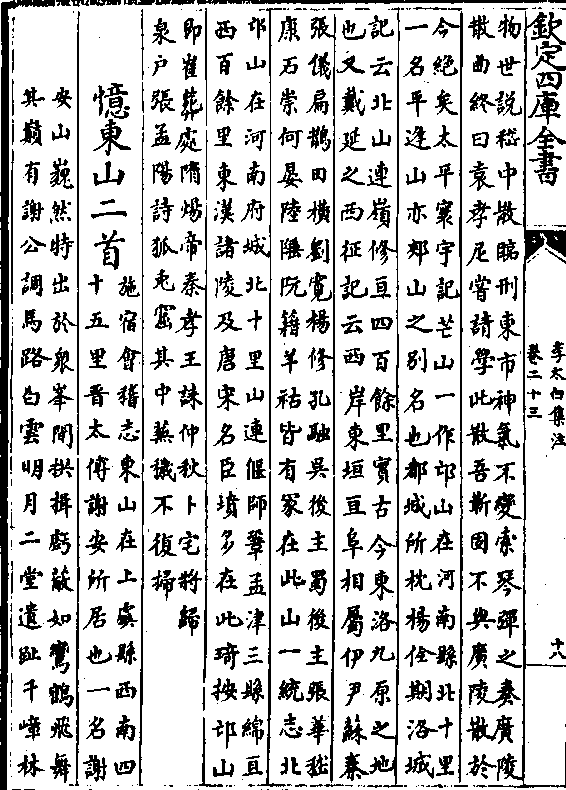 欽定四庫全書
李太白集注
卷二十三
十八
物世説嵇中散臨刑東市神氣不變索琴彈之奏廣陵
散曲終曰袁孝尼嘗請學此散吾靳固不與廣陵散於
今絶矣太平寰宇記芒山一作邙山在河南縣北十里
一名平逢山亦郟山之别名也都城所枕楊佺期洛城
記云北山連嶺修亘四百餘里實古今東洛九原之地
也又戴延之西征記云西岸東垣亘阜相屬伊尹蘇秦
張儀扁鵲田横劉寛楊修孔融吳後主蜀後主張華嵇
康石崇何晏陸陲阮籍羊祜皆有冢在此山一統志北
邙山在河南府城北十里山連偃師鞏孟津三縣綿亘
西百餘里東漢諸陵及唐宋名臣墳多在此琦按邙山
即崔葬處隋煬帝秦孝王誄仲秋卜宅將歸
泉户張孟陽詩狐兎窟其中蕪穢不復掃
憶東山二首
施宿會稽志東山在上虞縣西南四
十五里晋太傅謝安所居也一名謝
安山巍然特出於衆峯間拱揖虧蔽如鸞鶴飛舞
其巔有謝公調馬路白雲明月二堂遺趾千嶂林